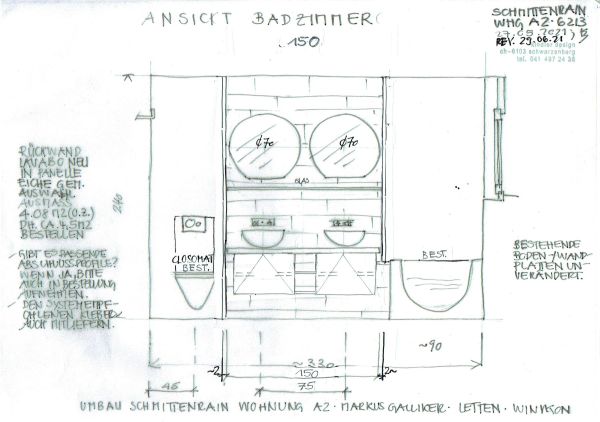 ANSICHT BADZIMMER
150
SCHMITTENRAIN
WHG A2·6213
27.05.2021
REV. 29.06.21
design
ch-6103 schwarzenberg
tel. 041 497 24 38
RÜCKWAND
LAVABO NEU
IN PANELLE
EICHE GEM.
AUSWAHL
AUSMASS
4.08 M2 (O.Z.)
DH. CA. 4.5 M2
BESTELLEN
GIBT ES PASSENDE
ABSCHLUSSPROFILE?
WENN JA, BITTE
AUCH IN BESTELLUNG
AUFNEHMEN.
DEN SYSTEMEMPF-
OHLENEN KLEBER
AUCH MITLIEFERN.
240
¢70
¢70
GLAS
CLOSOMAT
BEST.
BEST.
BESTEHENDE
BODEN-/WAND-
PLATTEN UN-
VERÄNDERT.
~90
~330
~2
150
2~
46
75
UMBAU SCHMITTENRAIN WOHNUNG A2 · MARKUS GALLIKER · LETTEN · WINIKON